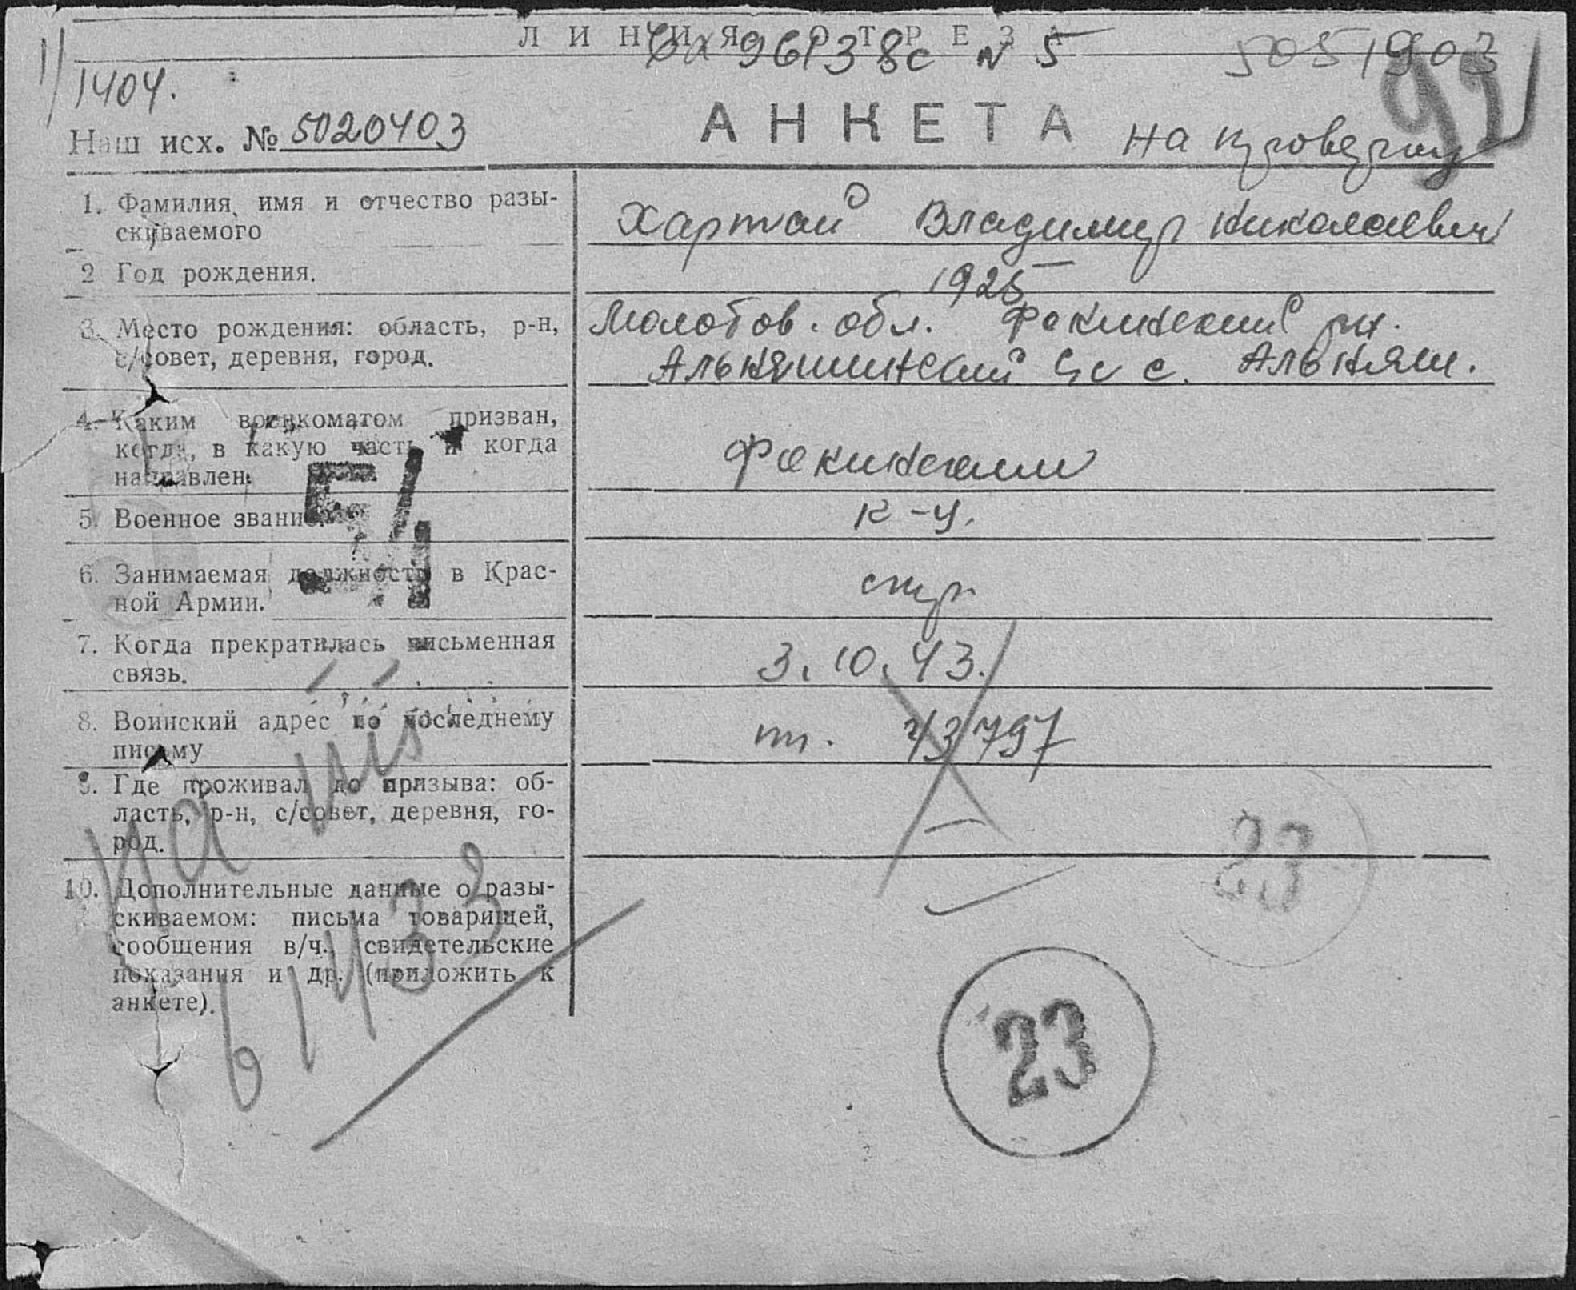 ЛИНИЯ ОТРЕЗА
Вх 96138с № 5 5051903
1404.
92
Наш исх. № 5020403
АНКЕТА
на проверку
1. Фамилия, имя и отчество разы-
скиваемого
Хартай Владимир Николаевич
2 Год рождения.
1925
3. Место рождения: область, р-н,
с/совет, деревня, город.
Молотов. обл. Фокинский рн.
Альняшинский с/с с. Альняш.
4. Каким военкоматом призван,
когда, в какую часть и когда
направлен.
Фокинским
5. Военное звание.
к-ц.
6. Занимаемая должность в Крас-
ной Армии.
стр.
7. Когда прекратилась письменная
связь.
3.10.43.
8. Воинский адрес по последнему
письму
пп. 43797
9. Где проживал до призыва: об-
ласть, р-н, с/совет, деревня, го-
род.
—
10. Дополнительные данные о разы-
скиваемом: письма товарищей,
сообщения в/ч., свидетельские
показания и др. (приложить к
анкете).
Б/
на
61433
23
23